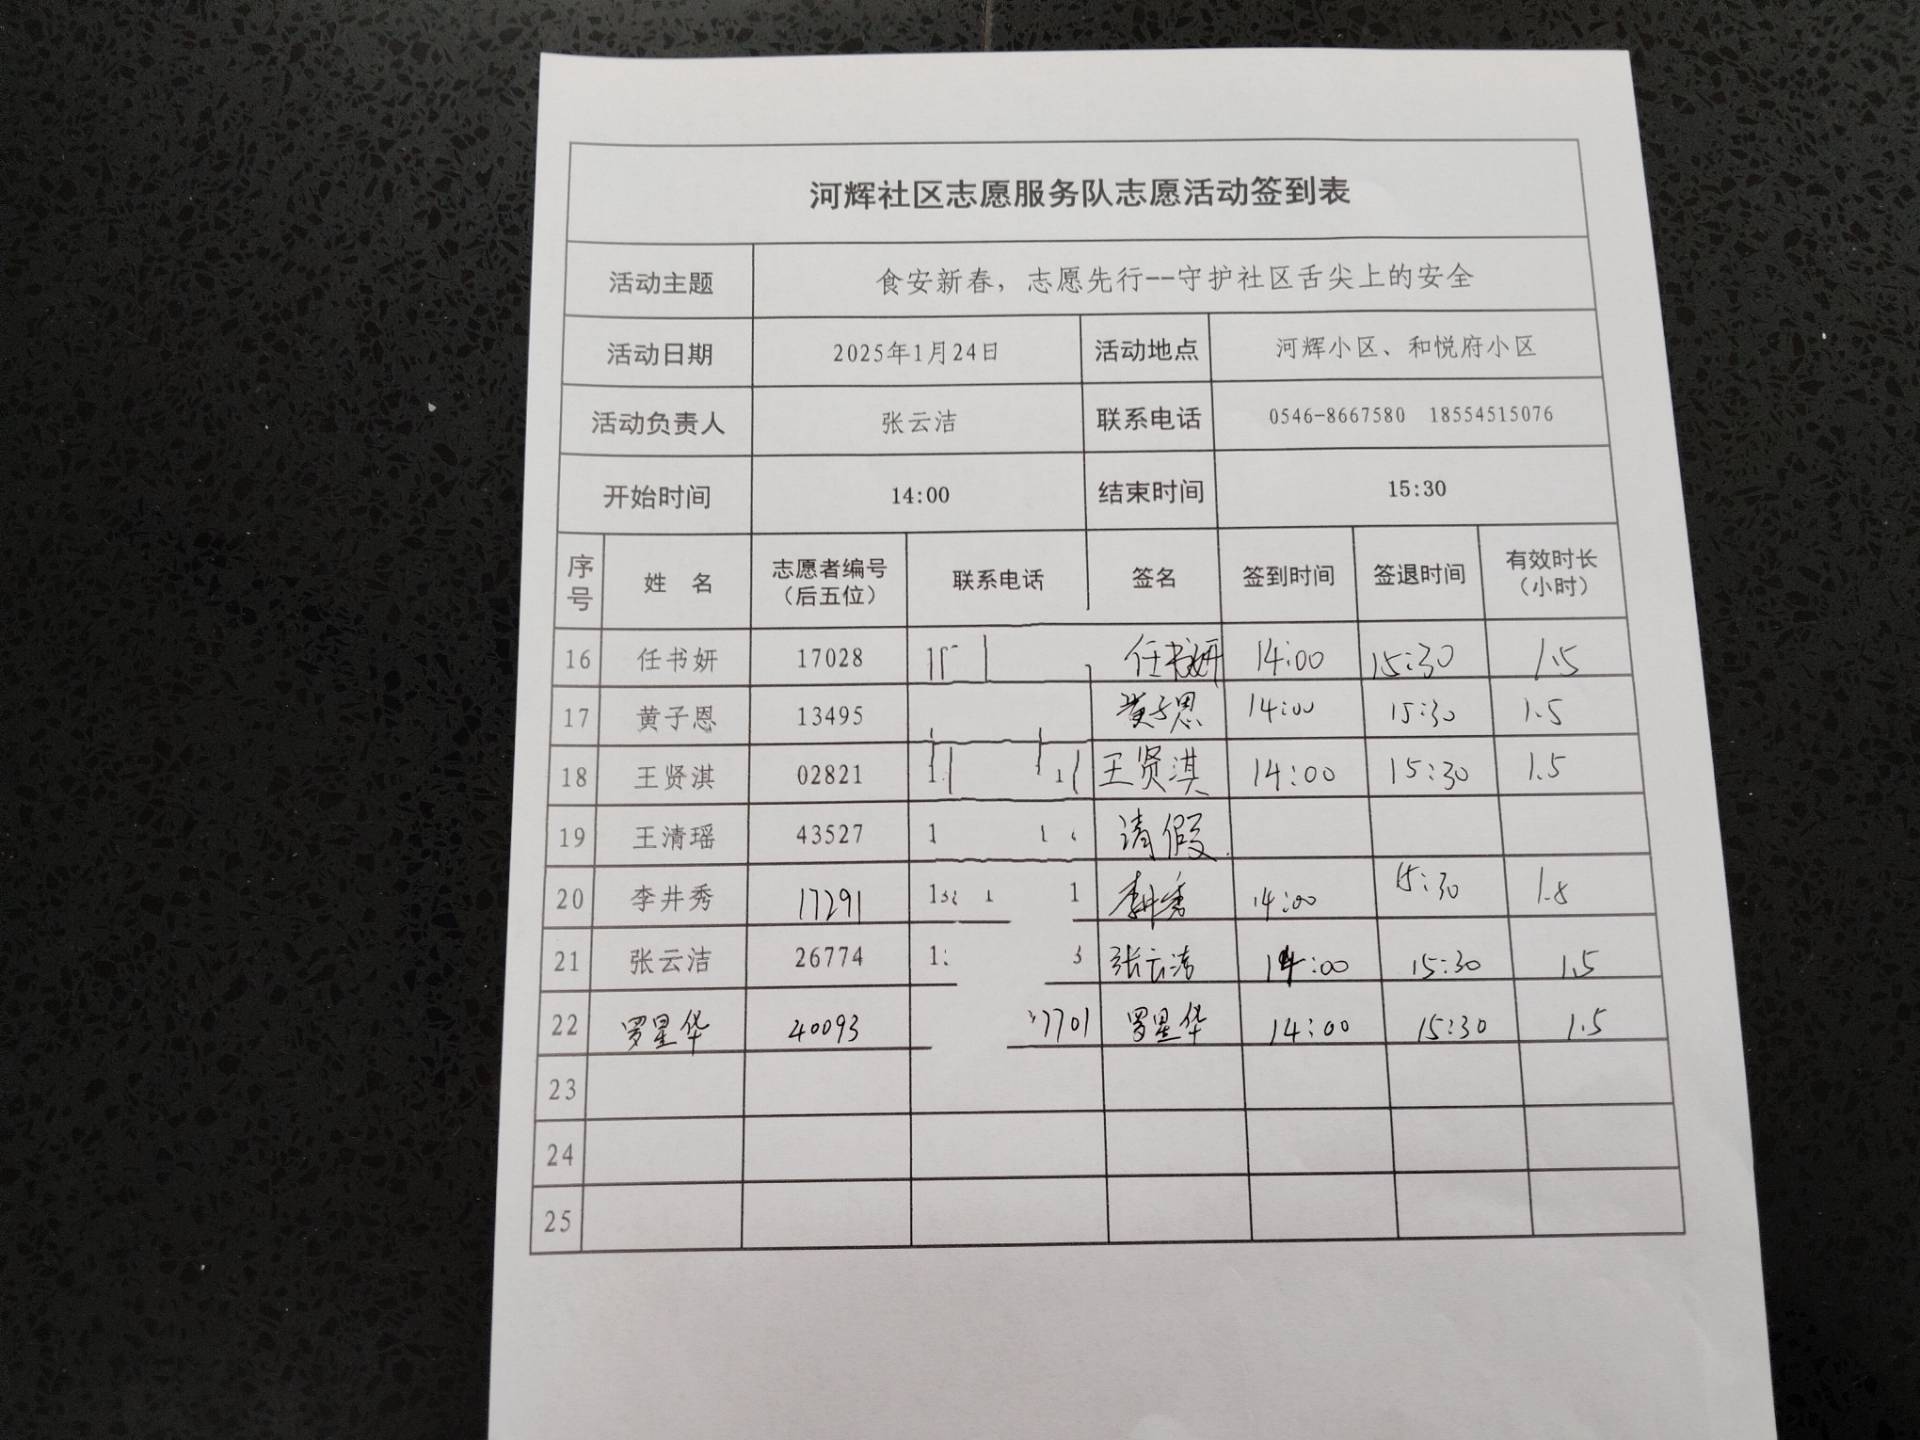 河辉社区志愿服务队志愿活动签到表
活动主题 食安新春，志愿先行--守护社区舌尖上的安全
活动日期 2025年1月24日 活动地点 河辉小区、和悦府小区
活动负责人 张云洁 联系电话 0546-8667580 18554515076
开始时间 14:00 结束时间 15:30
序号 姓 名 志愿者编号（后五位） 联系电话 签名 签到时间 签退时间 有效时长（小时）
16 任书妍 17028 任书妍 14:00 15:30 1.5
17 黄子恩 13495 黄子恩 14:00 15:30 1.5
18 王贤淇 02821 王贤淇 14:00 15:30 1.5
19 王清瑶 43527 请假
20 李井秀 17291 李井秀 14:00 15:30
21 张云洁 26774 张云洁 14:00 15:30 1.5
22 罗星华 40093 7701 罗星华 14:00 15:30 1.5
23
24
25